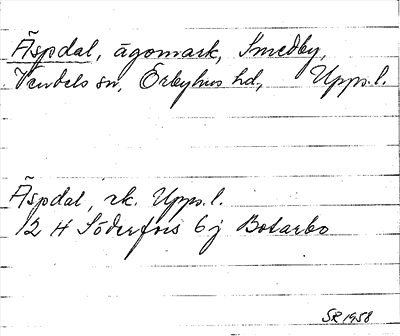 Äspdal, ägomark, Smedby,
Vendels sn, Örbyhus hd, Upps.l.
Äspdal, rk. Upps.l.
12 H Söderfors 6j Botarbo
SR 1958